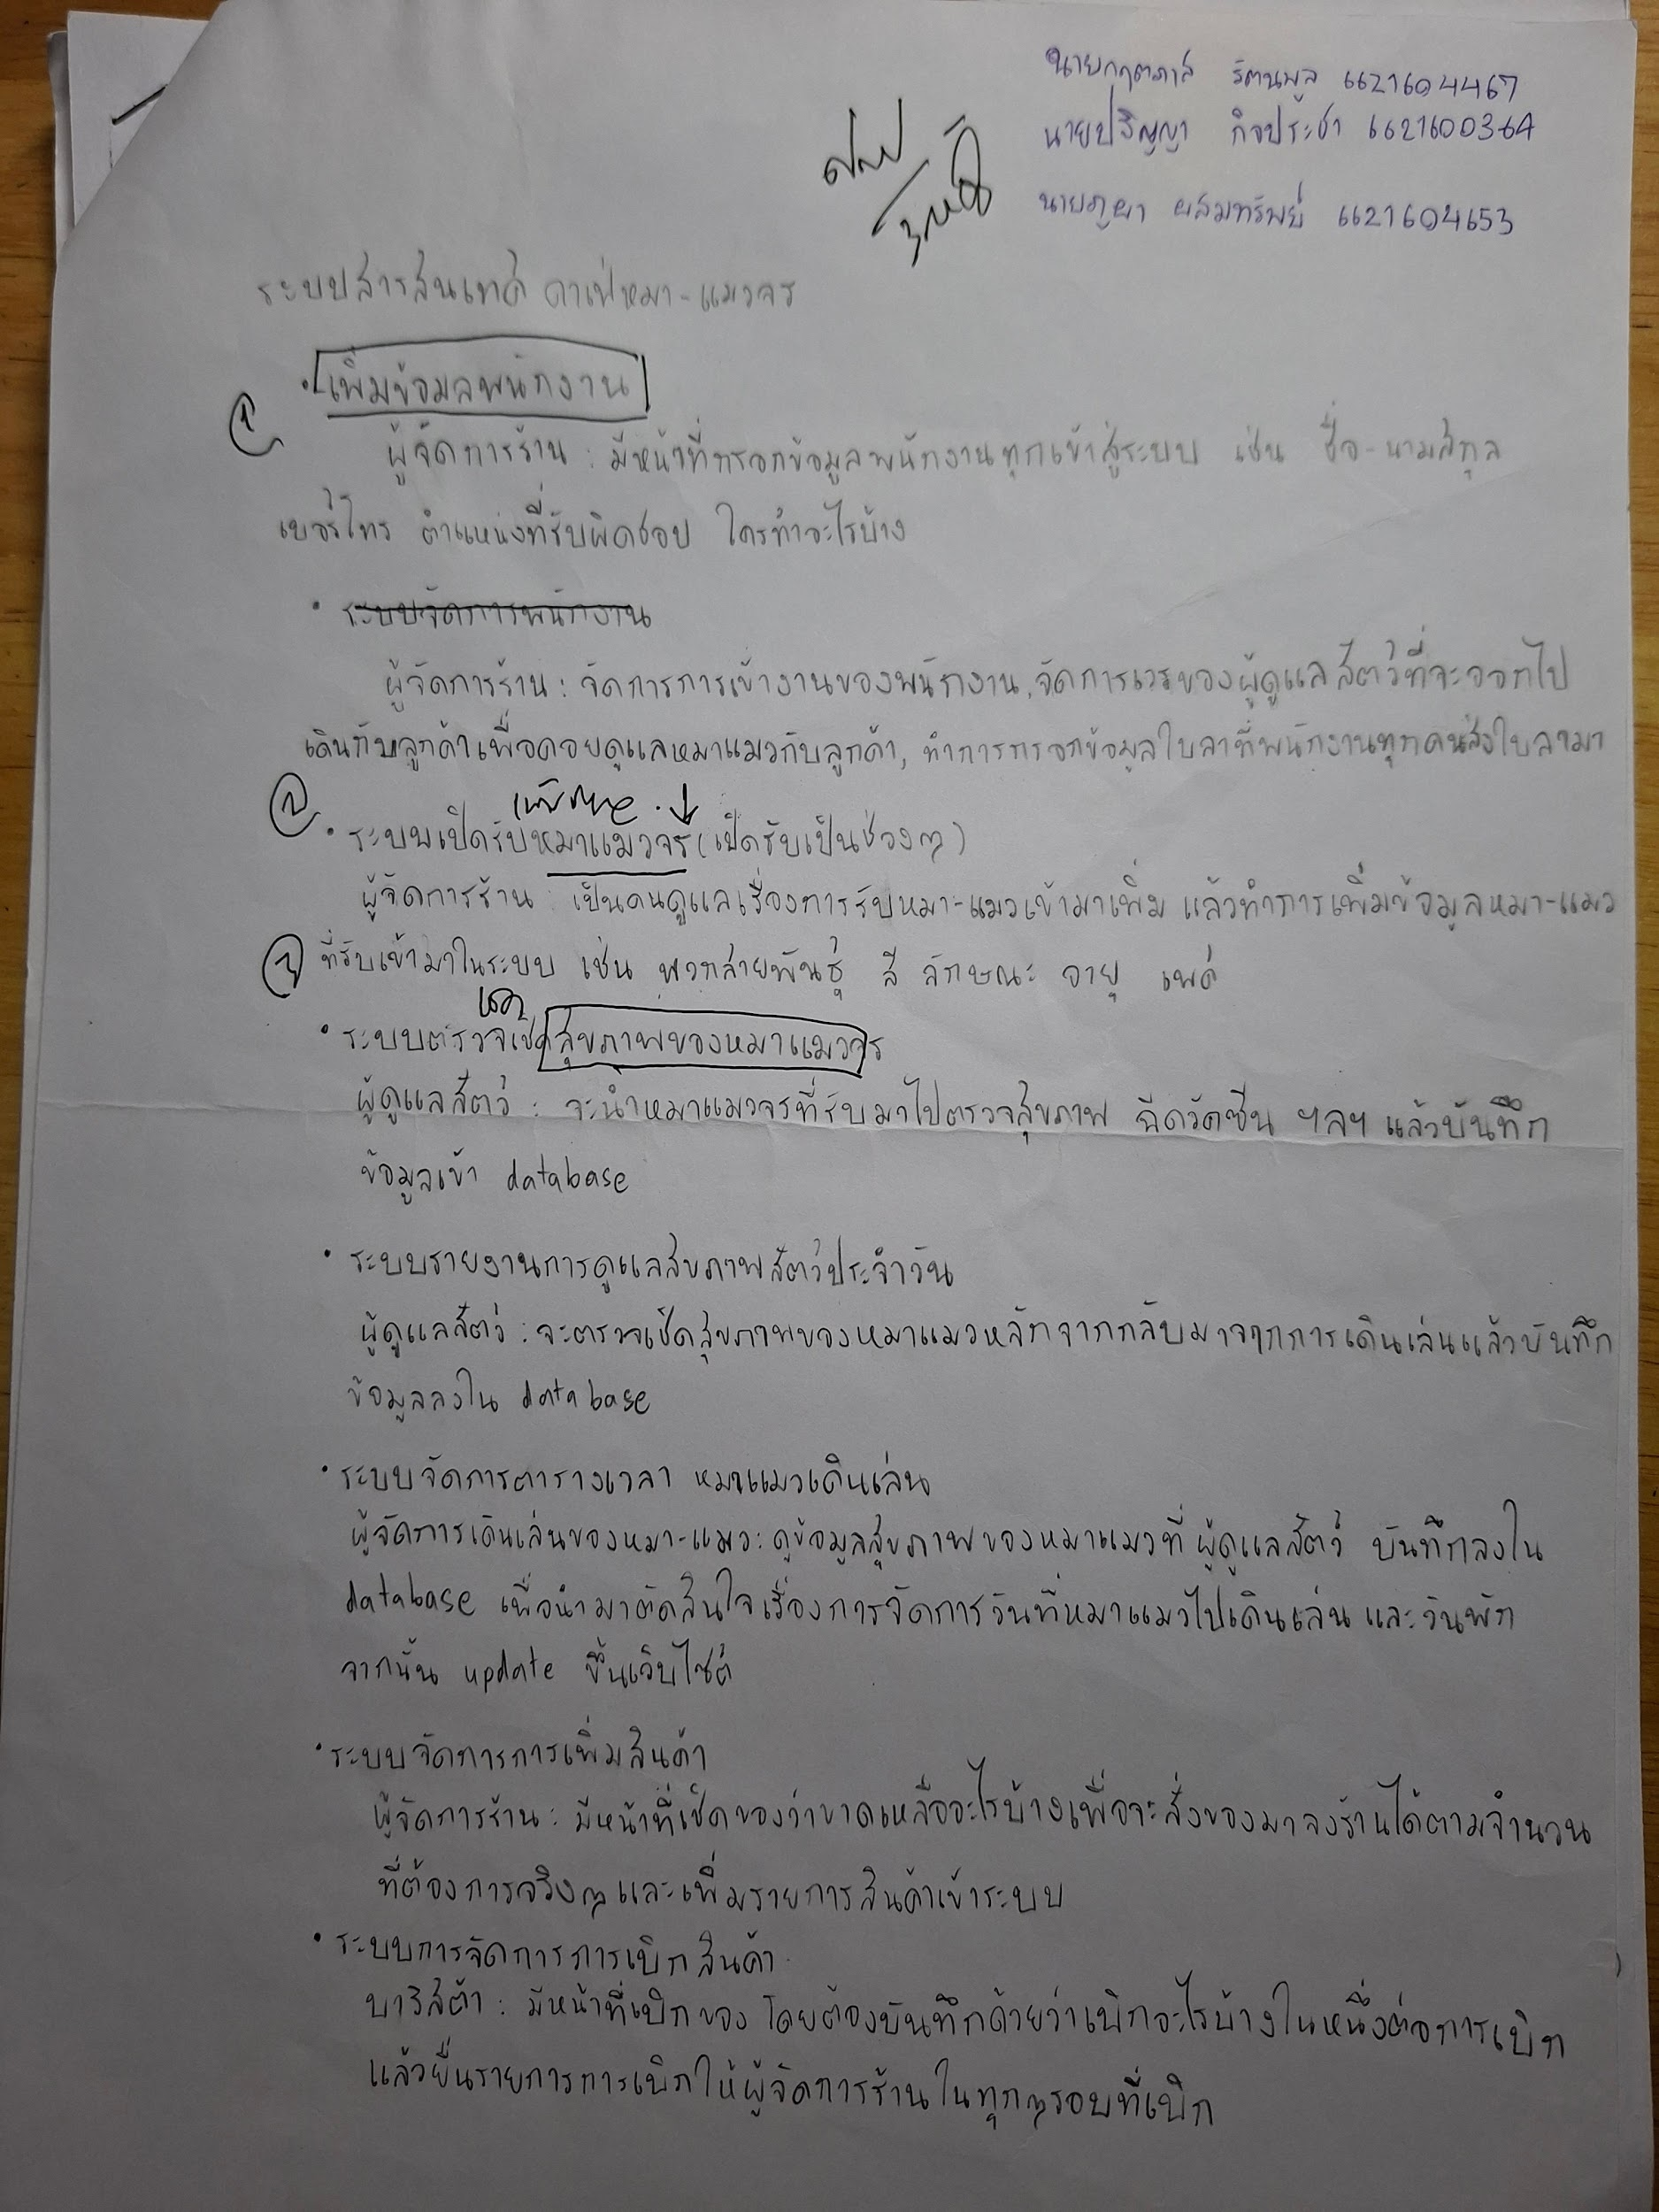 นายกฤตภาส รัตนพูล 6621604467
นายปริญญา กิจประชา 6621600364
นายภูผา ผสมทรัพย์ 6621604653
ระบบสารสนเทศ คาเฟ่หมา-แมวจร
• เพิ่มข้อมูลพนักงาน
๑
ผู้จัดการร้าน : มีหน้าที่กรอกข้อมูลพนักงานทุกเข้าสู่ระบบ เช่น ชื่อ-นามสกุล
เบอร์โทร ตำแหน่งที่รับผิดชอบ ใครทำอะไรบ้าง
• ระบบจัดการพนักงาน
ผู้จัดการร้าน : จัดการการเข้างานของพนักงาน, จัดการเวรของผู้ดูแลสัตว์ที่จะออกไป
เดินกับลูกค้าเพื่อคอยดูแลหมาแมวกับลูกค้า, ทำการกรอกข้อมูลใบลาที่พนักงานทุกคนส่งใบลามา
๒
• ระบบเปิดรับหมาแมวจร (เปิดรับเป็นช่วงๆ)
ผู้จัดการร้าน : เป็นคนดูแลเรื่องการรับหมา-แมวเข้ามาเพิ่ม แล้วทำการเพิ่มข้อมูลหมา-แมว
๓ ที่รับเข้ามาในระบบ เช่น พวกสายพันธุ์ สี ลักษณะ อายุ เพศ
• ระบบตรวจเช็คสุขภาพของหมาแมวจร
ผู้ดูแลสัตว์ : จะนำหมาแมวจรที่รับมาไปตรวจสุขภาพ ฉีดวัคซีน ฯลฯ แล้วบันทึก
ข้อมูลเข้า database
• ระบบรายงานการดูแลสุขภาพสัตว์ประจำวัน
ผู้ดูแลสัตว์ : จะตรวจเช็คสุขภาพของหมาแมวหลักจากกลับมาจากการเดินเล่นแล้วบันทึก
ข้อมูลลงใน database
• ระบบจัดการตารางเวลา หมาแมวเดินเล่น
ผู้จัดการเดินเล่นของหมา-แมว : ดูข้อมูลสุขภาพของหมาแมวที่ ผู้ดูแลสัตว์ บันทึกลงใน
database เพื่อนำมาตัดสินใจเรื่องการจัดการวันที่หมาแมวไปเดินเล่น และวันพัก
จากนั้น update ขึ้นเว็บไซต์
• ระบบจัดการการเพิ่มสินค้า
ผู้จัดการร้าน : มีหน้าที่เช็คของว่าขาดเหลืออะไรบ้างเพื่อจะสั่งของมาลงร้านได้ตามจำนวน
ที่ต้องการจริงๆ และเพิ่มรายการสินค้าเข้าระบบ
• ระบบการจัดการการเบิกสินค้า
บาริสต้า : มีหน้าที่เบิกของ โดยต้องบันทึกด้วยว่าเบิกอะไรบ้างในหนึ่งต่อการเบิก
แล้วยื่นรายการการเบิกให้ผู้จัดการร้านในทุกๆรอบที่เบิก